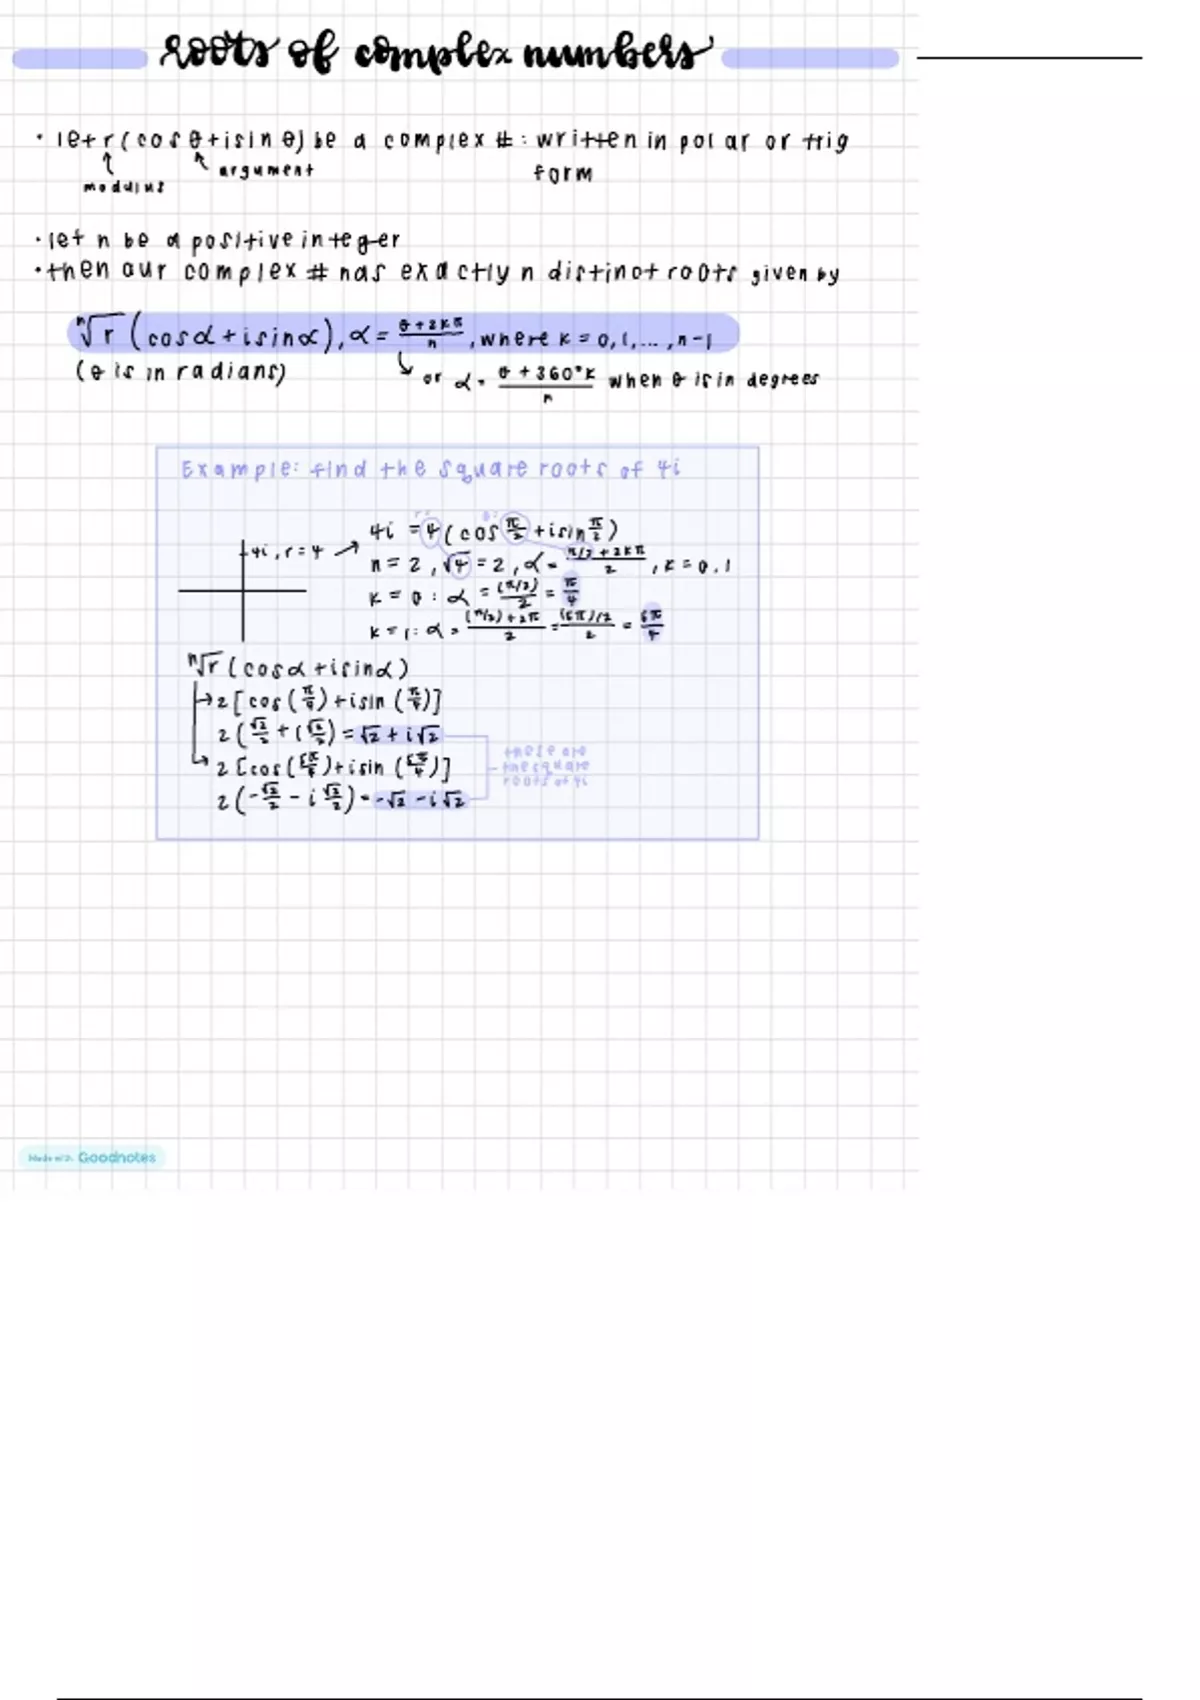 roots of complex numbers
• let r(cos θ + isin θ) be a complex #: written in polar or trig
modulus
argument
form
• let n be a positive integer
• then our complex # has exactly n distinct roots given by
ⁿ√r (cosα + isinα), α = θ+2kπ/n, where k = 0, 1, ..., n-1
(θ is in radians)
or α = θ+360°k/n when θ is in degrees
Example: find the square roots of 4i
4i, r=4
4i = 4(cos π/2 + isin π/2)
n = 2, √4 = 2, α = π/2 + 2kπ/2, k = 0, 1
k = 0: α = (π/2)/2 = π/4
k = 1: α = (π/2)+2π/2 = (5π)/2/2 = 5π/4
ⁿ√r (cosα + isinα)
2[cos(π/4) + isin(π/4)]
2(√2/2 + i√2/2) = √2 + i√2
2[cos(5π/4) + isin(5π/4)]
2(-√2/2 - i√2/2) = -√2 - i√2
these are
the square
roots of 4i
Made with Goodnotes